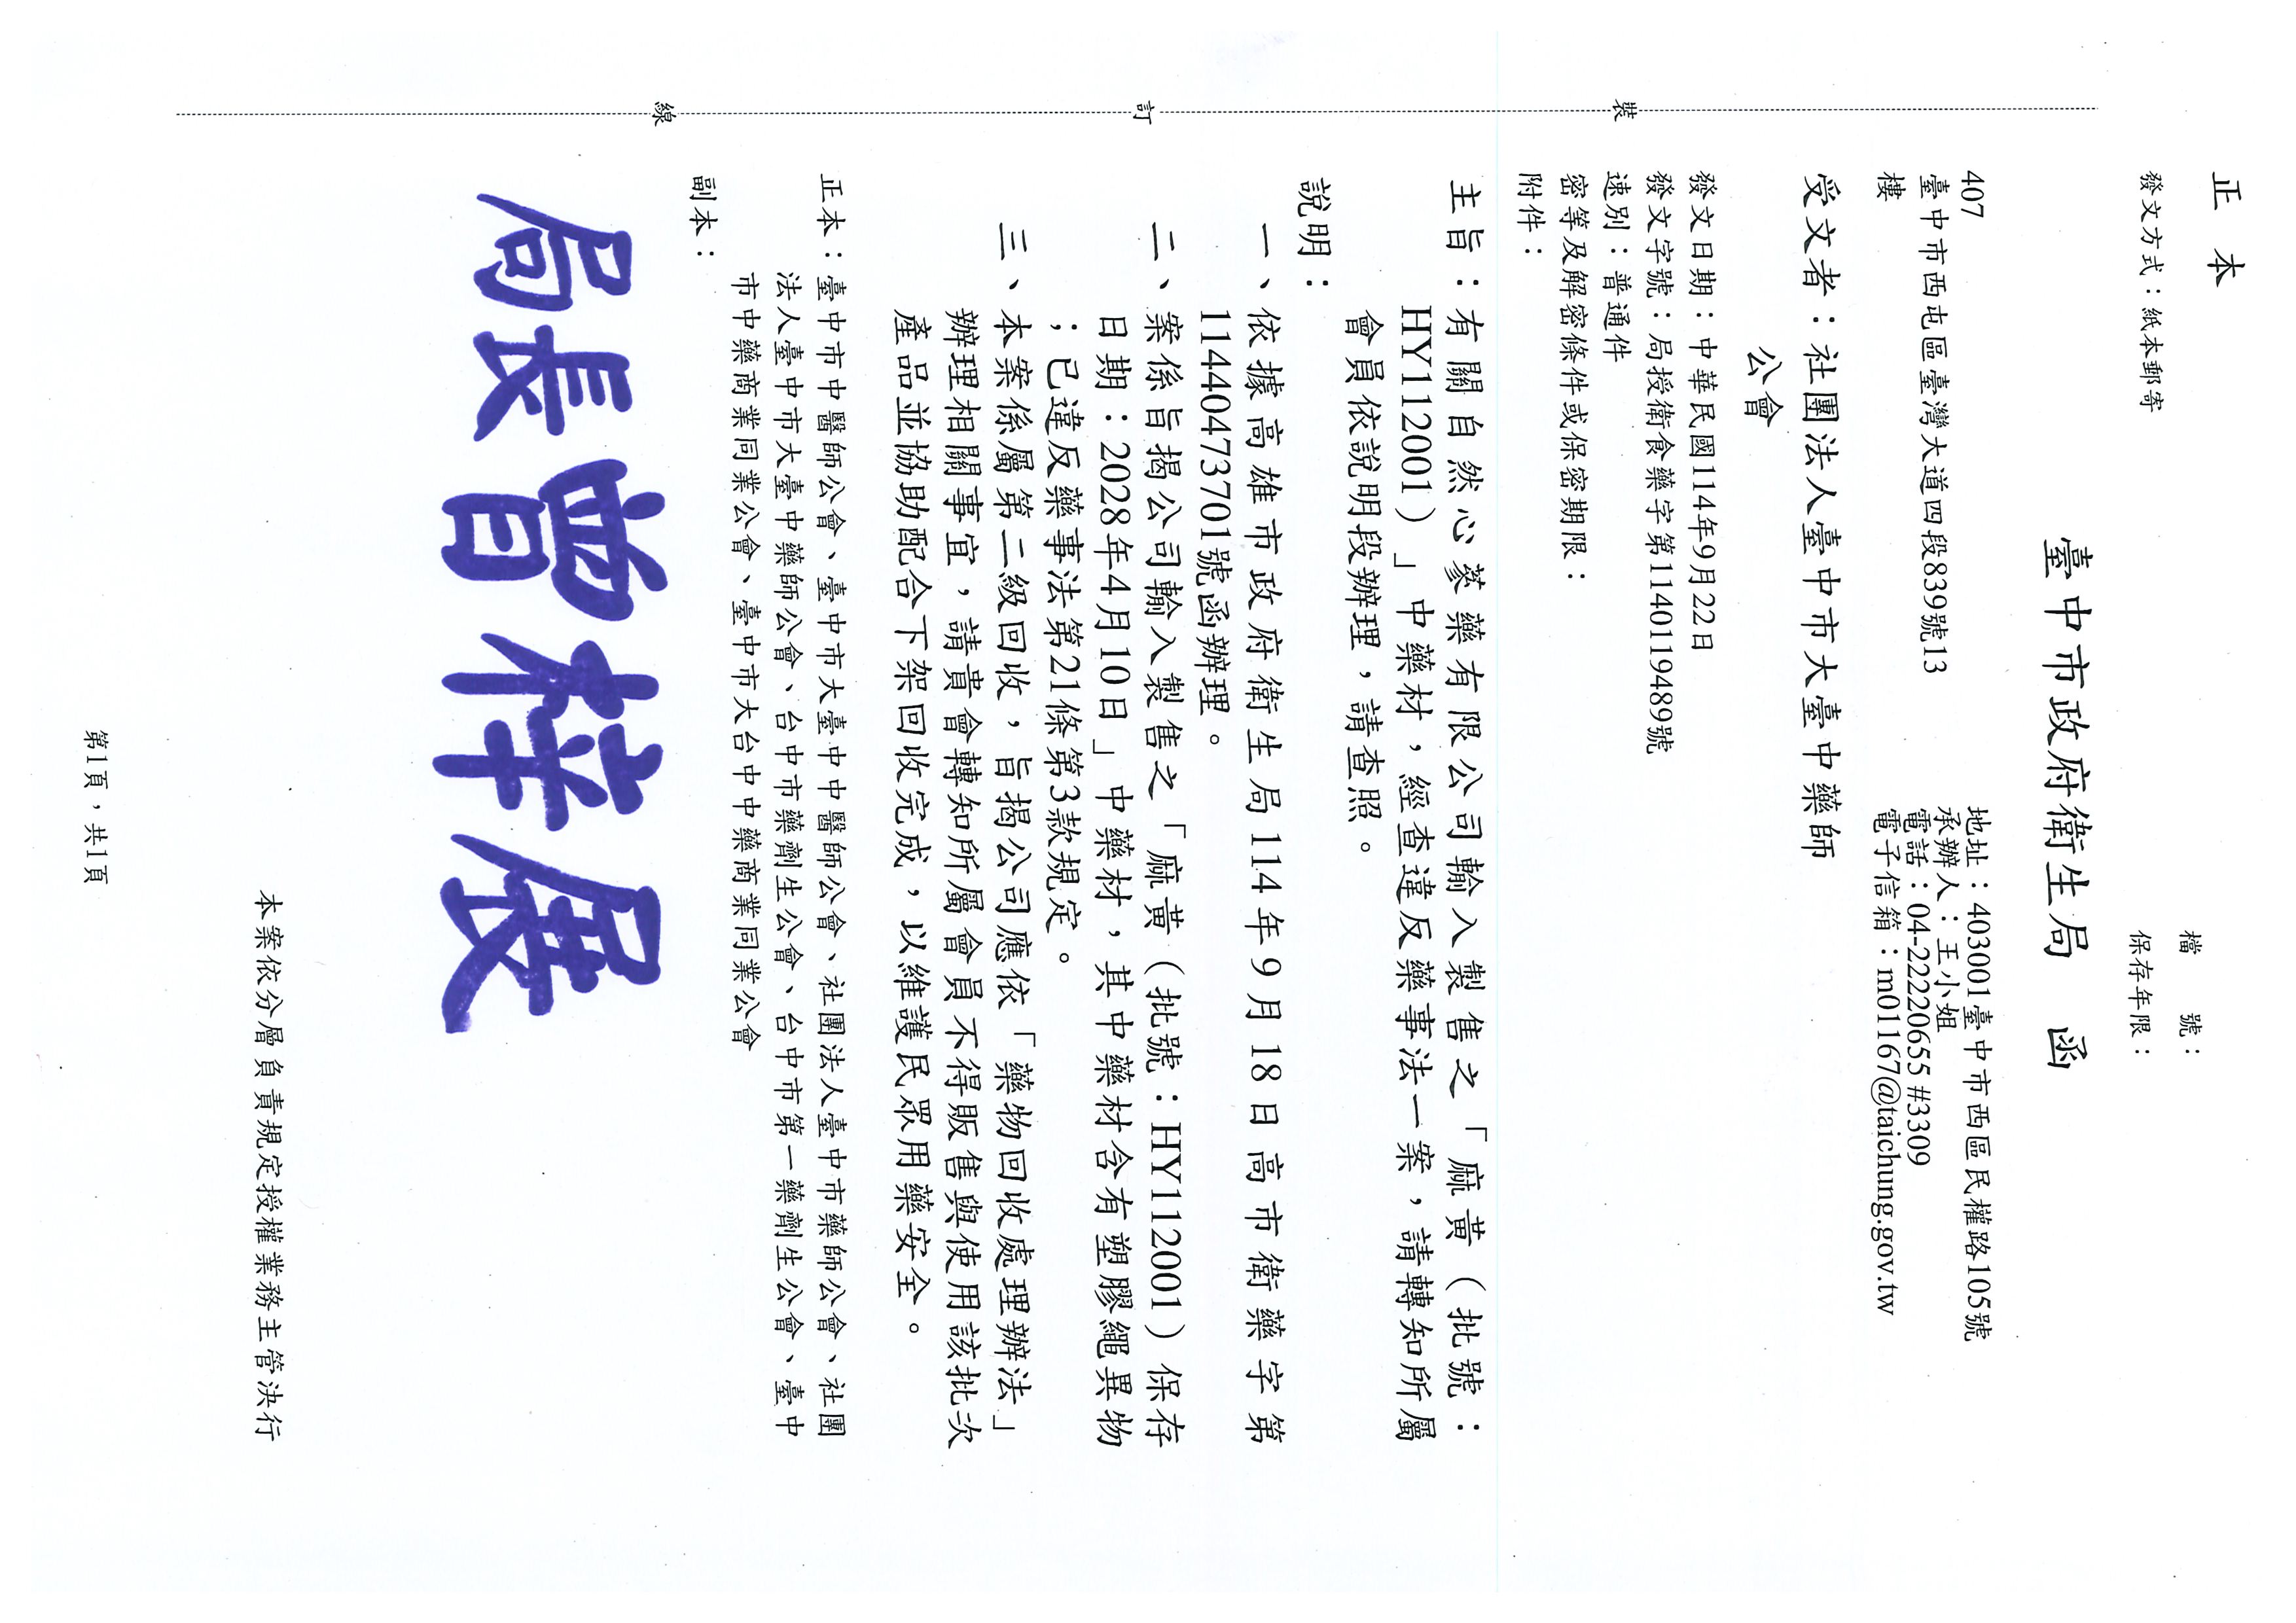 正　本
檔　　號：
保存年限：
發文方式：紙本郵寄
臺中市政府衛生局　函
407
臺中市西屯區臺灣大道四段839號13
樓
地址：403001臺中市西區民權路105號
承辦人：王小姐
電話：04-22220655 #3309
電子信箱：m01167@taichung.gov.tw
受文者：社團法人臺中市大臺中藥師
公會
發文日期：中華民國114年9月22日
發文字號：局授衛食藥字第1140119489號
速別：普通件
密等及解密條件或保密期限：
附件：
主旨：有關自然心蔘藥有限公司輸入製售之「麻黃（批號：
HY112001）」中藥材，經查違反藥事法一案，請轉知所屬
會員依說明段辦理，請查照。
說明：
一、依據高雄市政府衛生局114年9月18日高市衛藥字第
11440473701號函辦理。
二、案係旨揭公司輸入製售之「麻黃（批號：HY112001）保存
日期：2028年4月10日」中藥材，其中藥材含有塑膠繩異物
；已違反藥事法第21條第3款規定。
三、本案係屬第二級回收，旨揭公司應依「藥物回收處理辦法」
辦理相關事宜，請貴會轉知所屬會員不得販售與使用該批次
產品並協助配合下架回收完成，以維護民眾用藥安全。
正本：臺中市中醫師公會、臺中市大臺中中醫師公會、社團法人臺中市藥師公會、社團
法人臺中市大臺中藥師公會、台中市藥劑生公會、台中市第一藥劑生公會、臺中
市中藥商業同業公會、臺中市大台中中藥商業同業公會
副本：
局長曾梓展
本案依分層負責規定授權業務主管決行
第1頁，共1頁
裝
訂
線